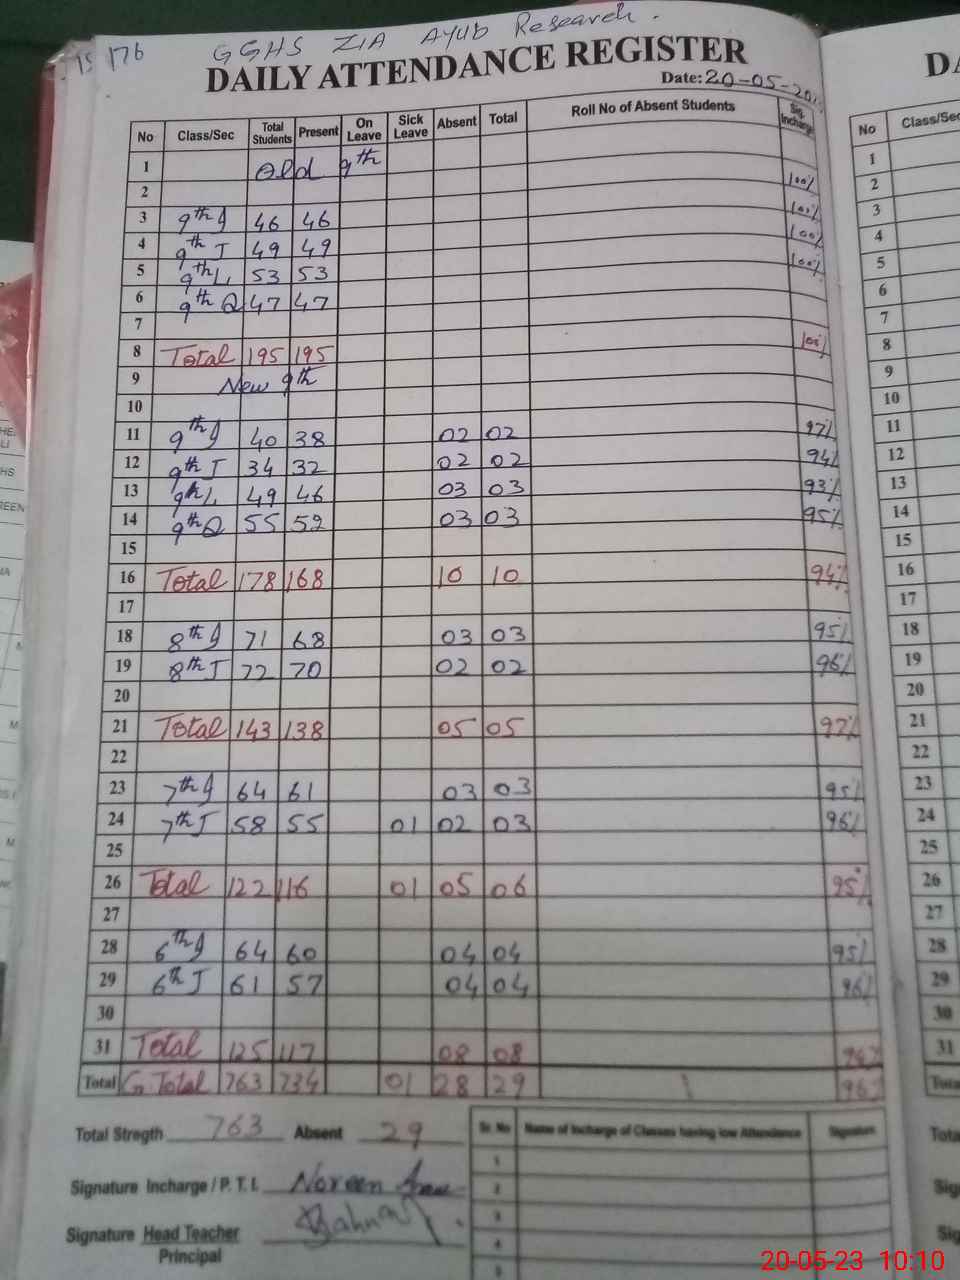 176
GGHS ZIA Ayub Research.
DAILY ATTENDANCE REGISTER
Date: 20-05-20
No Class/Sec Total Students Present On Leave Sick Leave Absent Total Roll No of Absent Students Sig. Incharge
1 Old 9th
2 100%
3 9th 46 46 100%
4 9th I 49 49 100%
5 9th L 53 53 100%
6 9th Q 47 47
7
8 Total 195 195 100%
9 New 9th
10
11 9th 40 38 02 02 97%
12 9th I 34 32 02 02 94%
13 9th L 49 46 03 03 93%
14 9th Q 55 52 03 03 95%
15
16 Total 178 168 10 10 94%
17
18 8th 71 68 03 03 95%
19 8th I 72 70 02 02 96%
20
21 Total 143 138 05 05 97%
22
23 7th 64 61 03 03 95%
24 7th I 58 55 01 02 03 96%
25
26 Total 122 116 01 05 06 95%
27
28 6th 64 60 04 04 95%
29 6th I 61 57 04 04 96%
30
31 Total 125 117 08 08 94%
Total G.Total 763 734 01 28 29 96%
Total Stregth 763 Absent 29
Sr. No Name of Incharge of Classes having low Attendance Signature
1
2
3
4
5
Signature Incharge / P. T. I. Noreen
Signature Head Teacher
Principal
No Class/Sec
1
2
3
4
5
6
7
8
9
10
11
12
13
14
15
16
17
18
19
20
21
22
23
24
25
26
27
28
29
30
31
Total
20-05-23 10:10